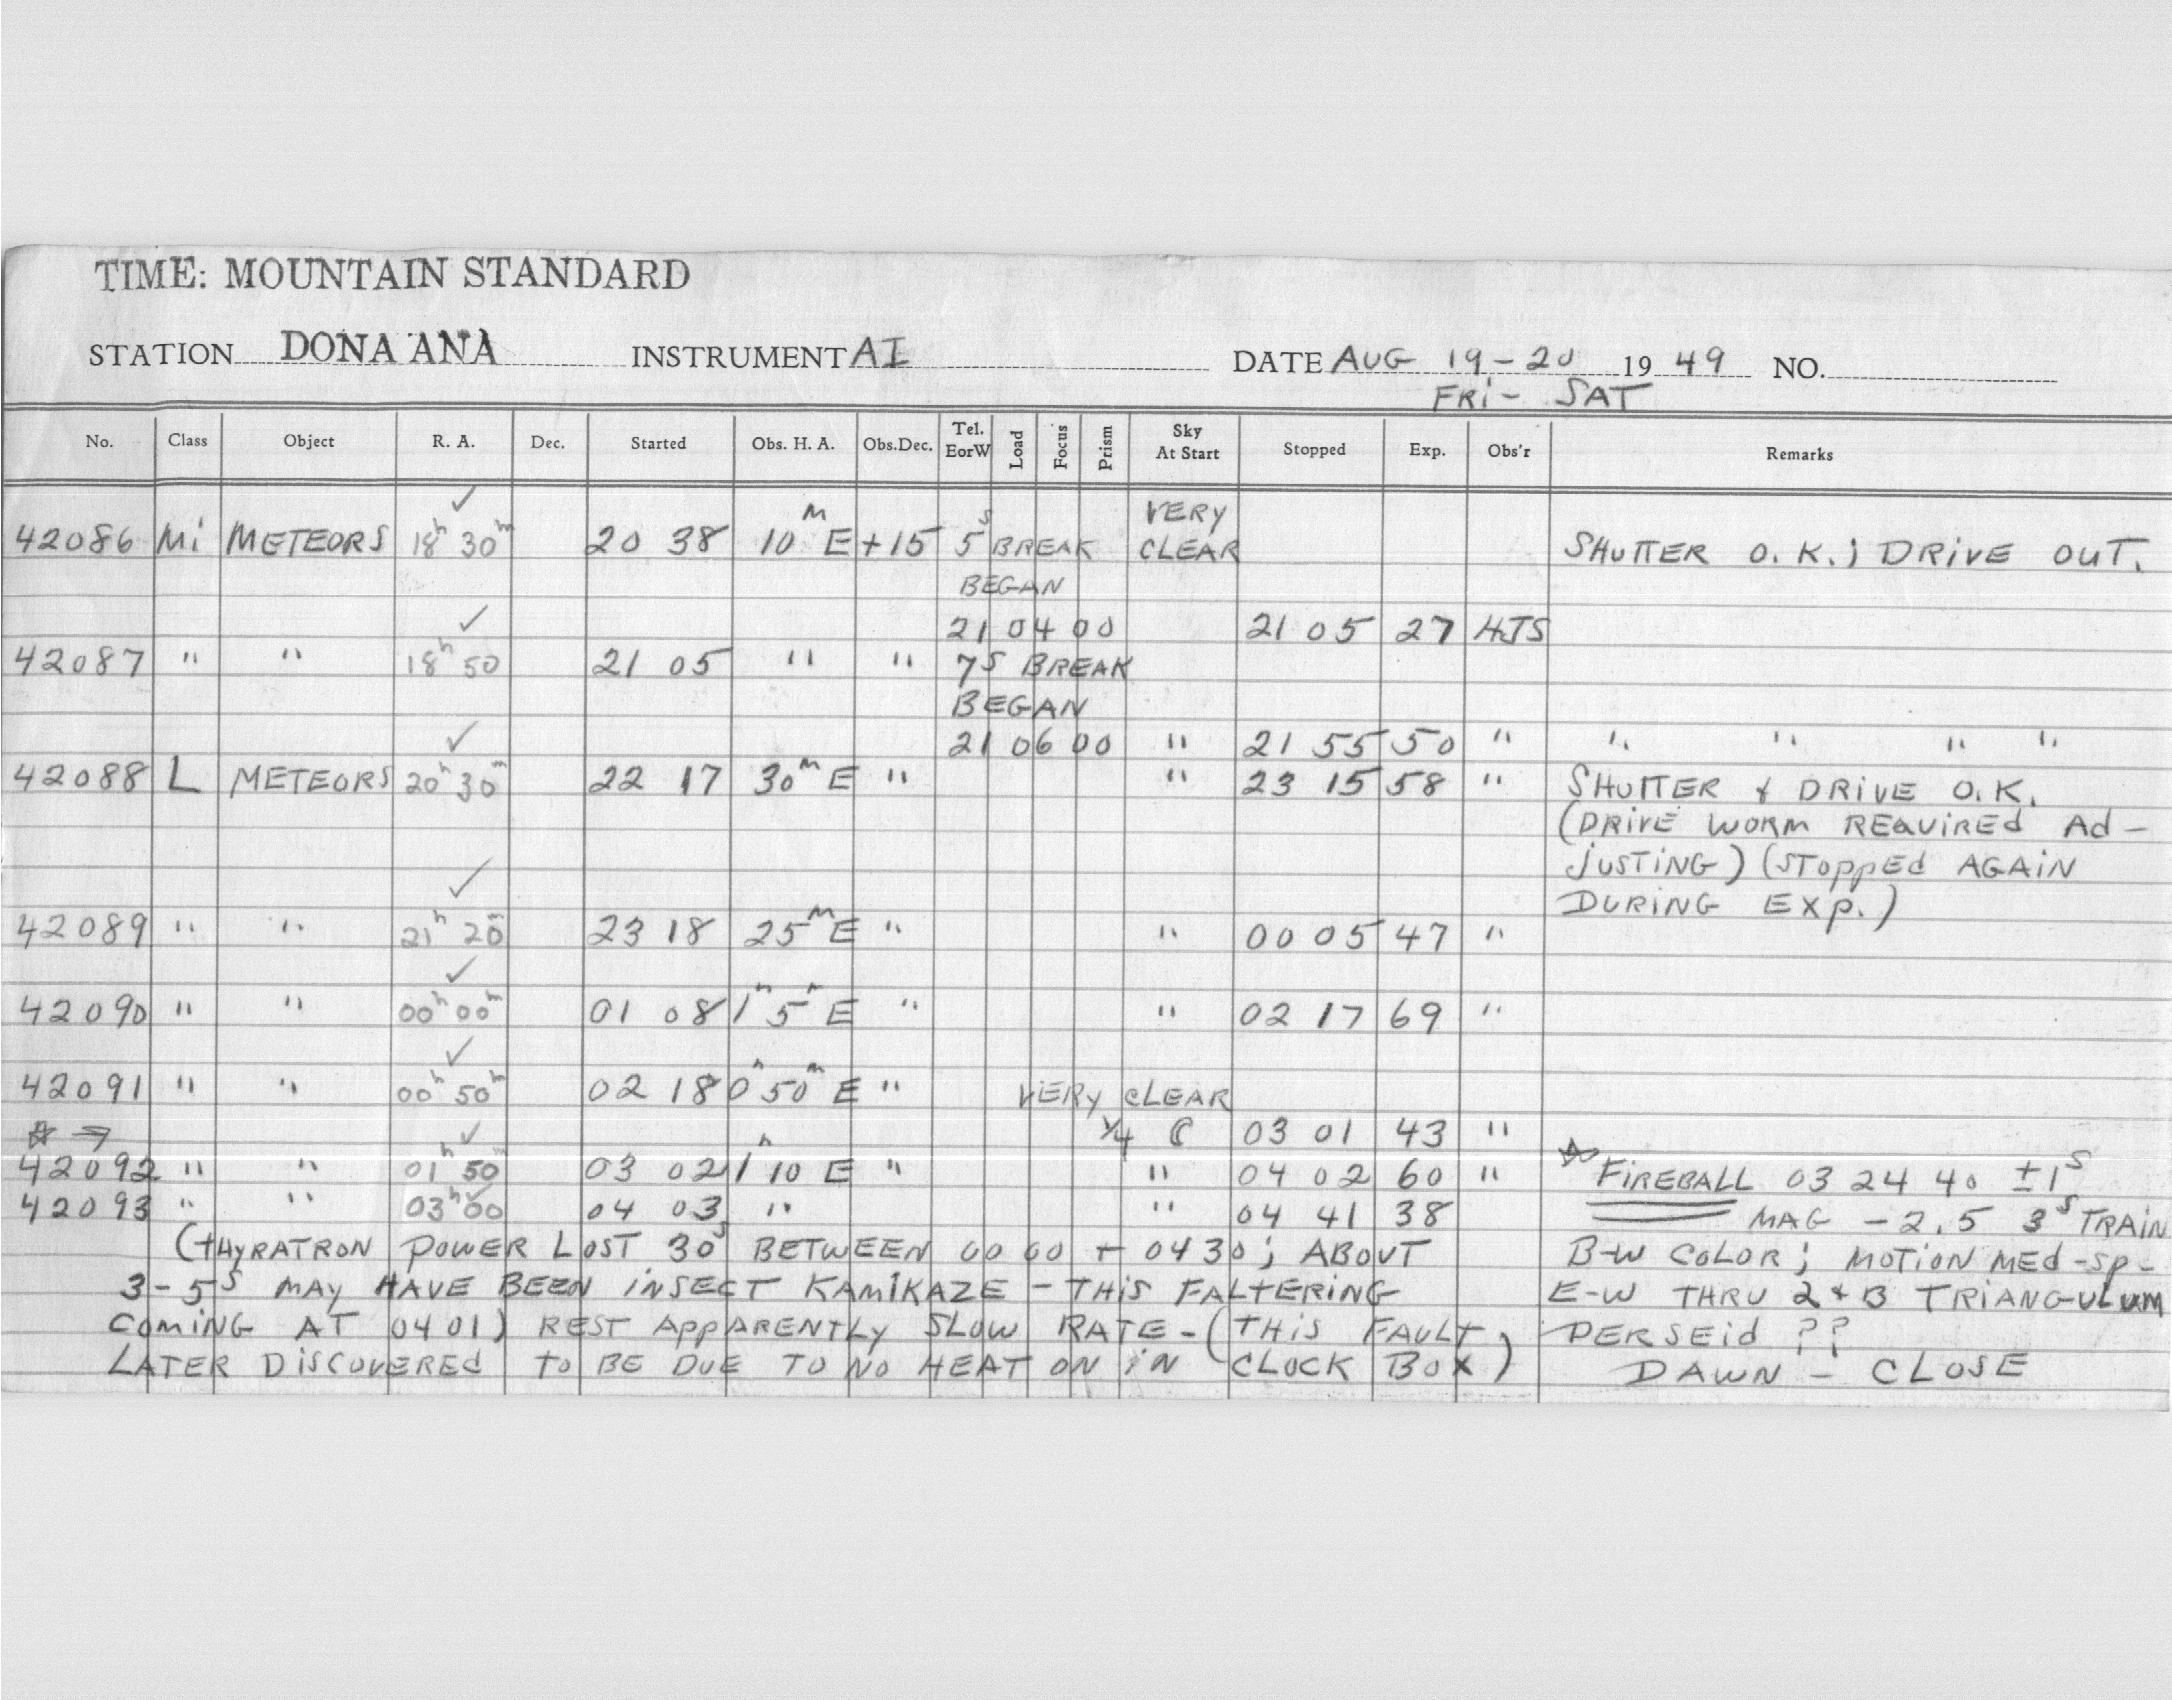 TIME: MOUNTAIN STANDARD
STATION DONA ANA INSTRUMENT AI DATE AUG 19-20 19 49 NO.
FRI- SAT
No. Class Object R. A. Dec. Started Obs. H. A. Obs.Dec. Tel. EorW Load Focus Prism Sky At Start Stopped Exp. Obs'r Remarks
✓ VERY
42086 Mi METEORS 18h 30m 20 38 10M E +15 5S BREAK CLEAR SHUTTER O.K.; DRIVE OUT.
BEGAN
✓ 21 04 00 21 05 27 HJS
42087 " " 18h 50 21 05 " " 7S BREAK
BEGAN
✓ 21 06 00 " 21 55 50 " " " " "
42088 L METEORS 20h 30m 22 17 30M E " " 23 15 58 " SHUTTER & DRIVE O.K.
(DRIVE WORM REQUIRED AD-
JUSTING) (STOPPED AGAIN
✓ DURING EXP.)
42089 " " 21h 20m 23 18 25M E " " 00 05 47 "
✓
42090 " " 00h 00m 01 08 1h 5m E " " 02 17 69 "
✓
42091 " " 00h 50m 02 18 0h 50m E " VERY CLEAR
☆ → ✓ 1/4 ☾ 03 01 43 "
42092 " " 01h 50m 03 02 1h 10 E " " 04 02 60 " ☆ FIREBALL 03 24 40 ±1S
42093 " " 03h 00 ✓ 04 03 " " 04 41 38 MAG -2.5 3S TRAIN
(THYRATRON POWER LOST 30S BETWEEN 00 00 + 0430; ABOUT B-W COLOR; MOTION MED-SP-
3-5S MAY HAVE BEEN INSECT KAMIKAZE - THIS FALTERING E-W THRU 2 & B TRIANGULUM
COMING AT 0401) REST APPARENTLY SLOW RATE - (THIS FAULT PERSEID ??
LATER DISCOVERED TO BE DUE TO NO HEAT ON IN CLOCK BOX) DAWN - CLOSE